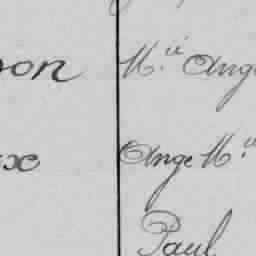 on M.ie Ang
x Ange M.ie
Paul